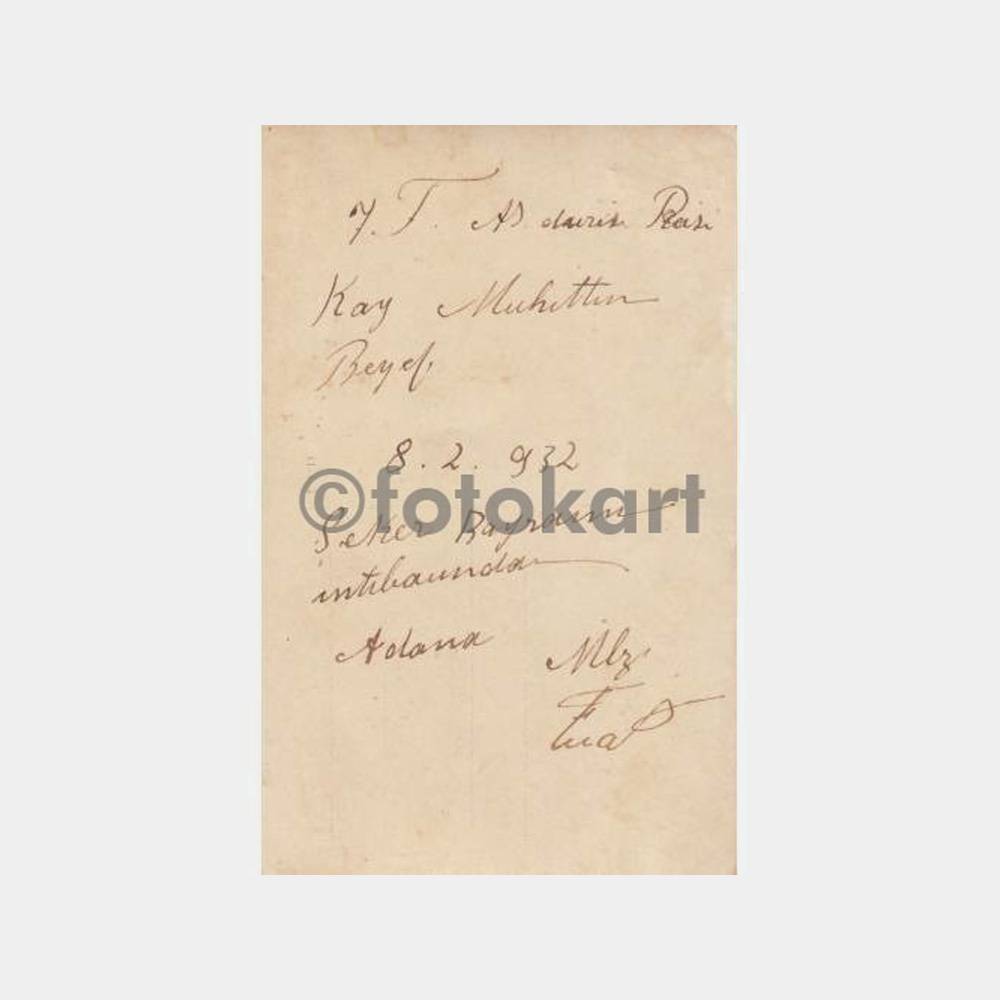 7. T. As dairesi Reisi
Kay Muhittin
Beyef.
8. 2. 932
©fotokart
Şeker Bayramı
intibaında
Adana Mlz.
Fuat